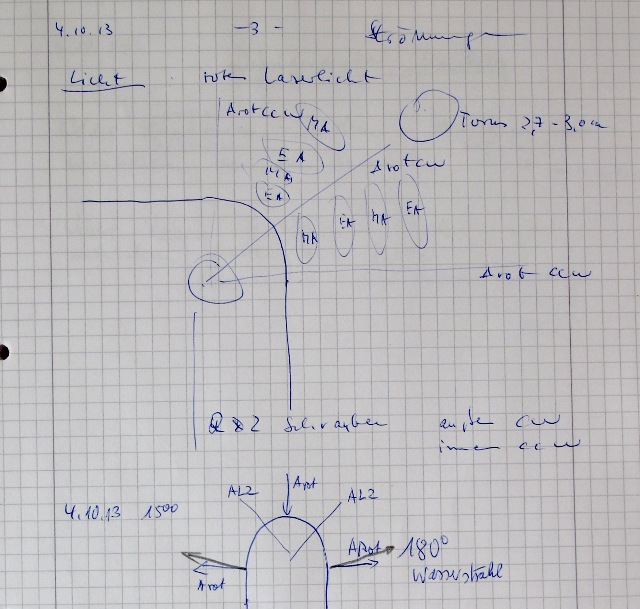 4.10.13 - 3 - Strömung
Licht rotes Laserlicht
Arot ccw MA
Torus 2,7 - 3,0 cm
EA
Arot cw
MA
EA
MA EA MA EA
Arot ccw
2 Schrauben außen cw
innen ccw
4.10.13 1500
AL2 Arot AL2
Arot 180°
Arot Wasserstrahl